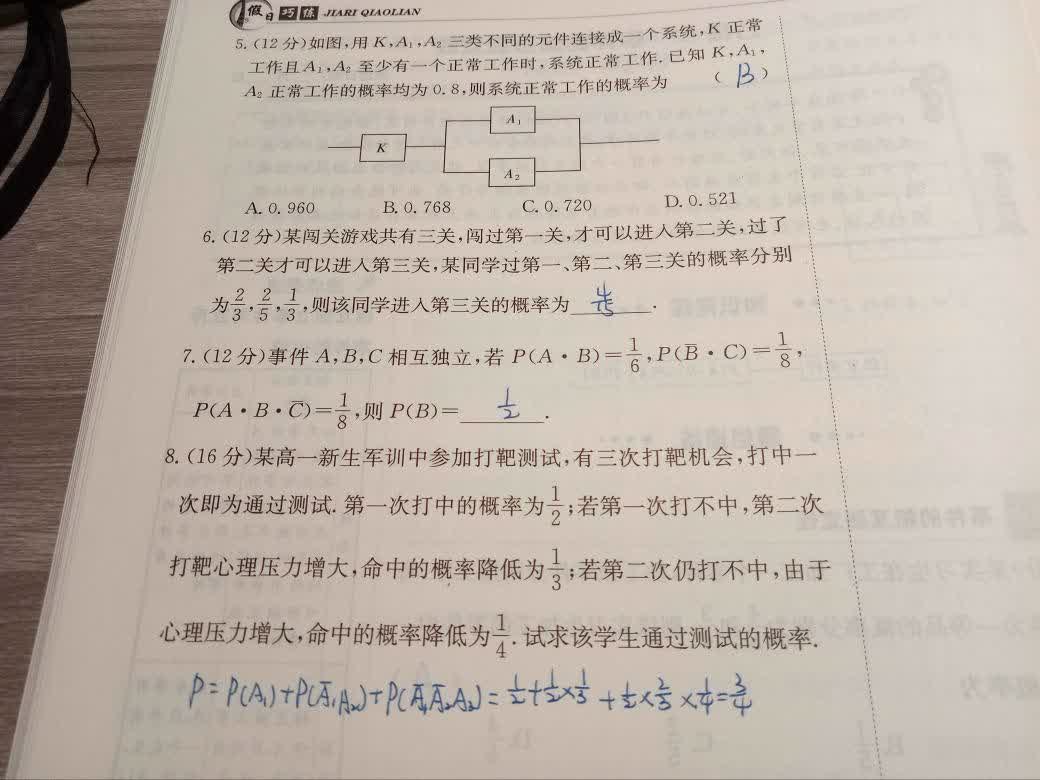 假日巧练 JIARI QIAOLIAN
5.(12分)如图,用K,A₁,A₂三类不同的元件连接成一个系统,K正常
工作且A₁,A₂至少有一个正常工作时,系统正常工作.已知K,A₁,
A₂正常工作的概率均为0.8,则系统正常工作的概率为 ( B )
A₁
K
A₂
A. 0.960 B. 0.768 C. 0.720 D. 0.521
6.(12分)某闯关游戏共有三关,闯过第一关,才可以进入第二关,过了
第二关才可以进入第三关,某同学过第一、第二、第三关的概率分别
为2/3,2/5,1/3,则该同学进入第三关的概率为 4/15 .
7.(12分)事件A,B,C相互独立,若P(A·B)=1/6,P(B̅·C)=1/8,
P(A·B·C̅)=1/8,则P(B)= 1/2 .
8.(16分)某高一新生军训中参加打靶测试,有三次打靶机会,打中一
次即为通过测试.第一次打中的概率为1/2;若第一次打不中,第二次
打靶心理压力增大,命中的概率降低为1/3;若第二次仍打不中,由于
心理压力增大,命中的概率降低为1/4.试求该学生通过测试的概率.
P=P(A₁)+P(A̅₁A₂)+P(A̅₁A̅₂A₃)=1/2+1/2×1/3+1/2×2/3×1/4=3/4